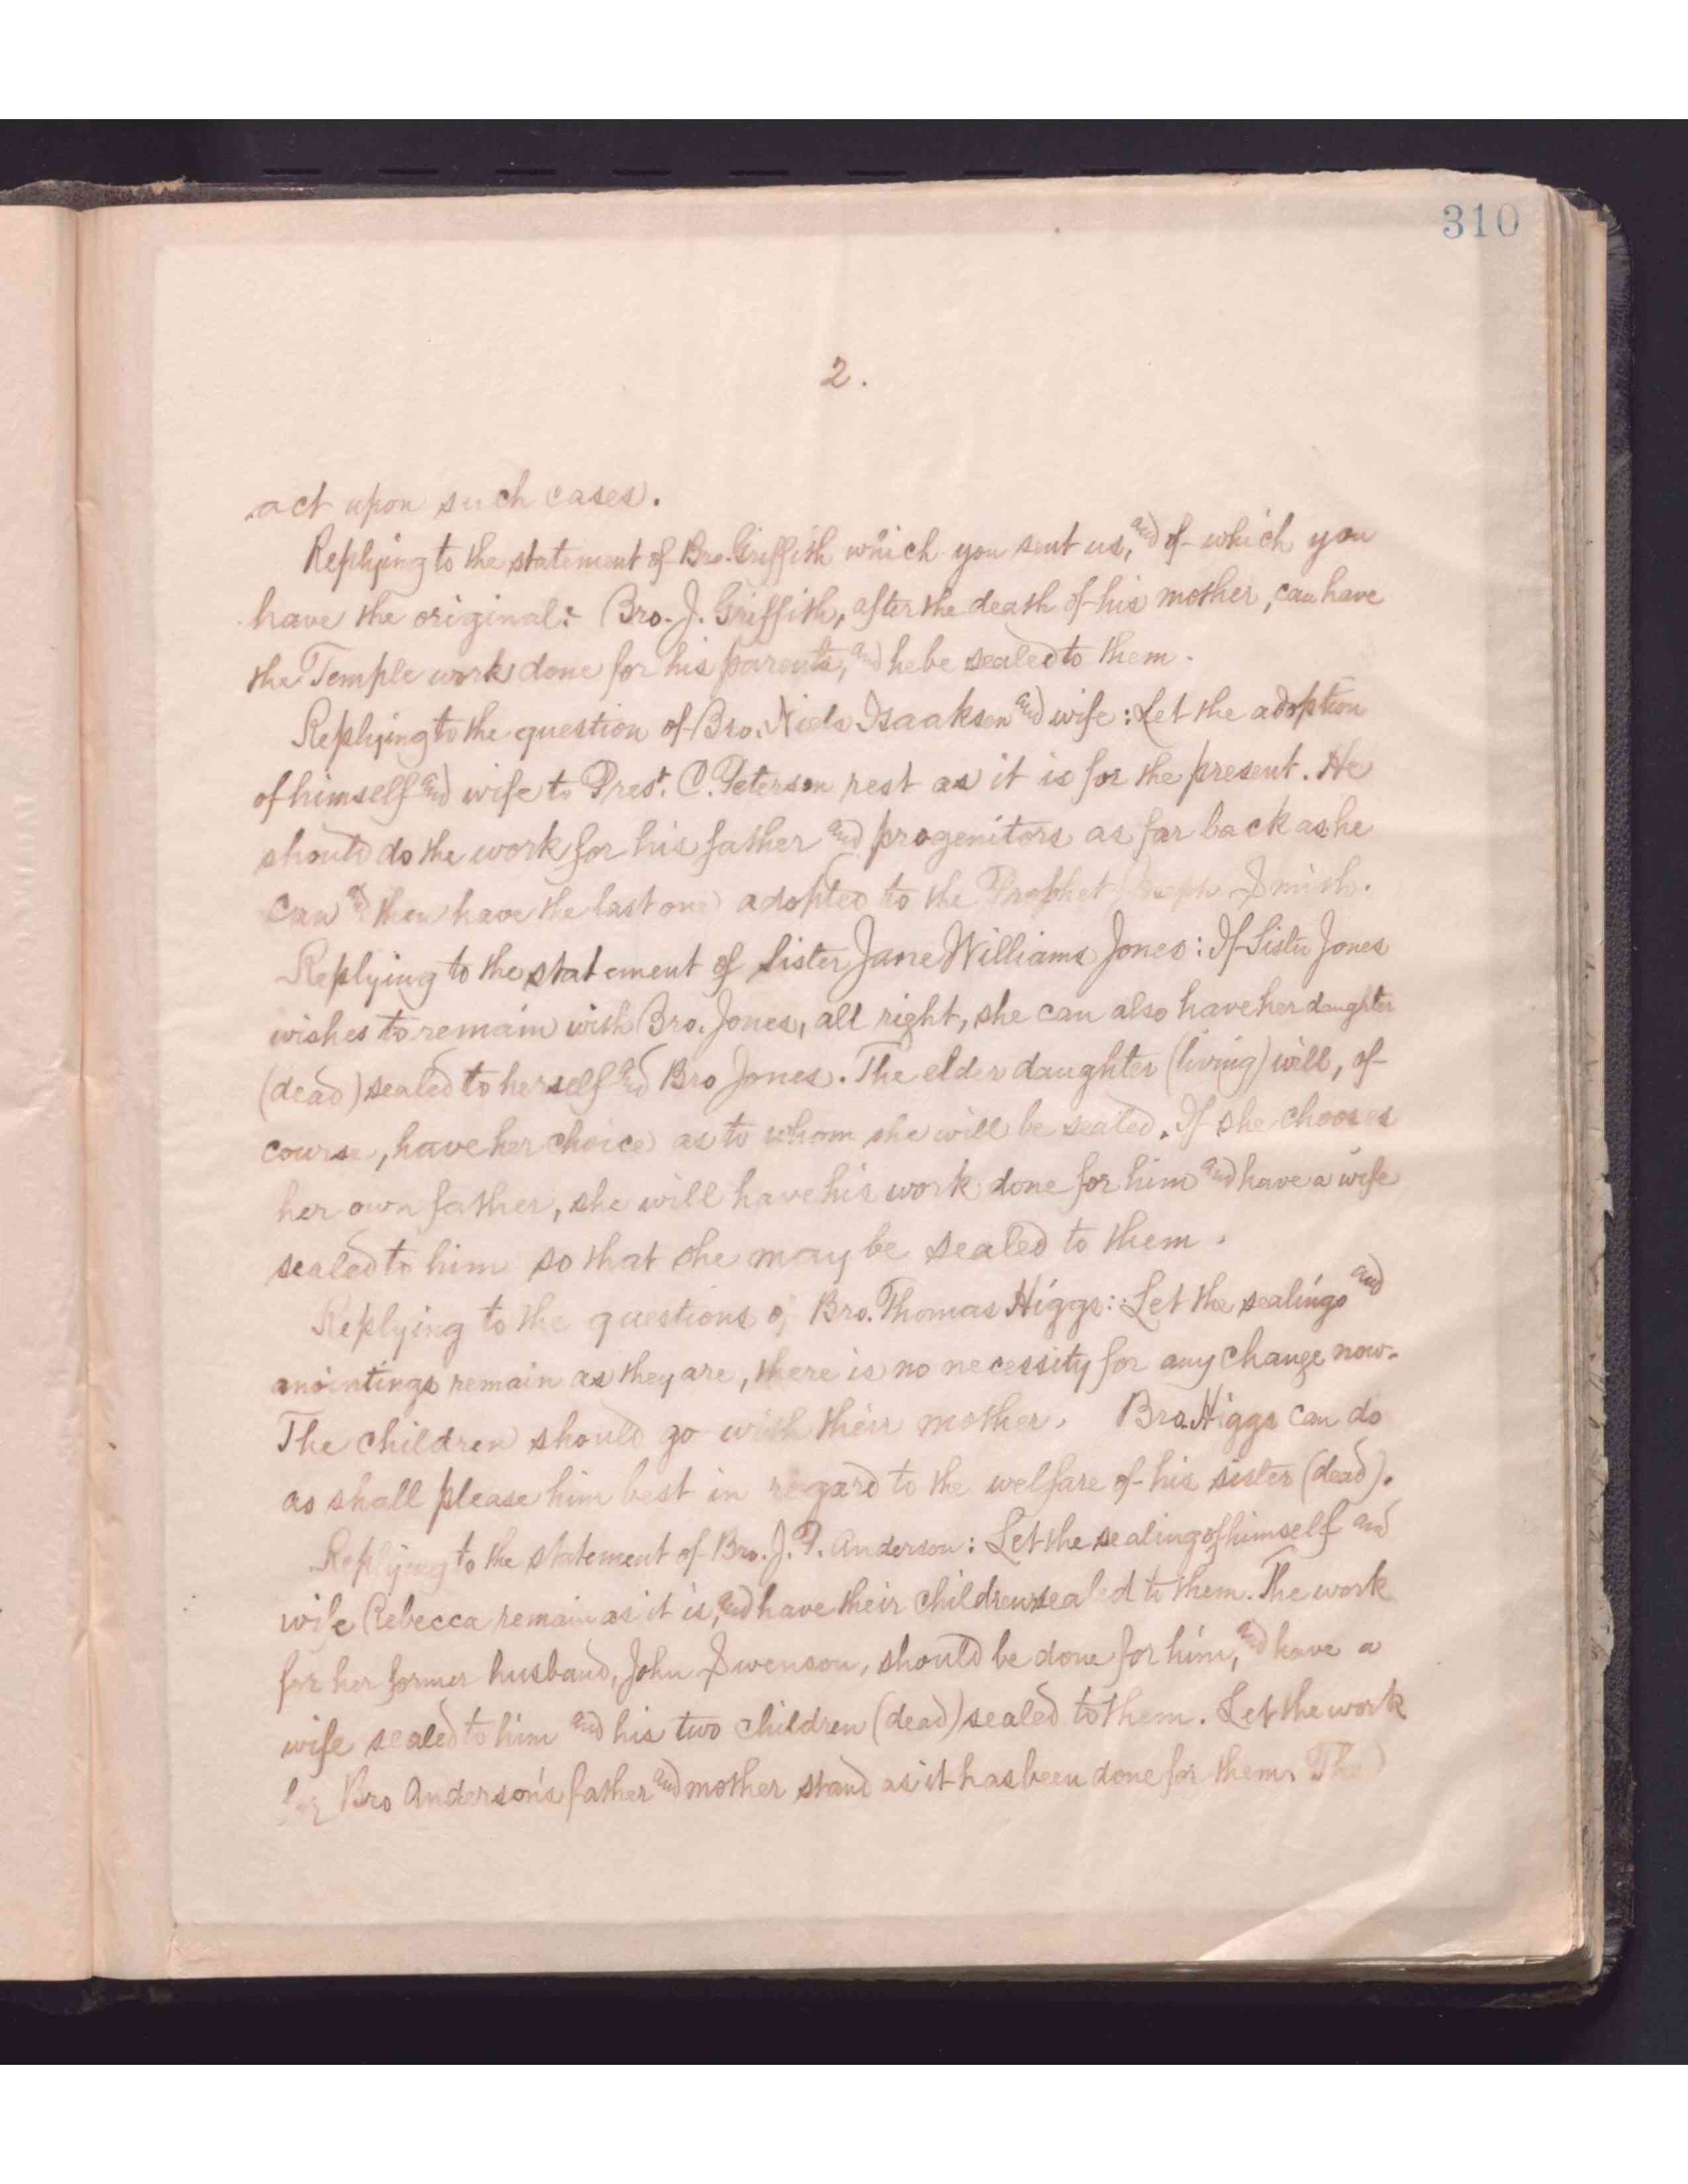 310
2.
act upon such cases.
Replying to the statement of Bro. Griffith which you sent us, and of which you
have the original:- Bro. J. Griffith, after the death of his mother, can have
the Temple work done for his parents, and he be sealed to them.
Replying to the question of Bro. Niels Isaaksen and wife: Let the adoption
of himself and wife to Prest. C. Peterson rest as it is for the present. He
should do the work for his father and progenitors as far back as he
can and then have the last one adopted to the Prophet Joseph Smith.
Replying to the statement of Sister Jane Williams Jones: If Sister Jones
wishes to remain with Bro. Jones, all right, she can also have her daughter
(dead) sealed to herself and Bro Jones. The elder daughter (living) will, of
course, have her choice as to whom she will be sealed. If she chooses
her own father, she will have his work done for him and have a wife
sealed to him so that she may be sealed to them.
Replying to the questions of Bro. Thomas Higgs: Let the sealings and
anointings remain as they are, there is no necessity for any change now.
The children should go with their mother. Bro. Higgs can do
as shall please him best in regard to the welfare of his sister (dead).
Replying to the statement of Bro. J. P. Anderson: Let the sealing of himself and
wife Rebecca remain as it is, and have their children sealed to them. The work
for her former husband, John Swenson, should be done for him, and have a
wife sealed to him and his two children (dead) sealed to them. Let the work
for Bro Anderson's father and mother stand as it has been done for them. The